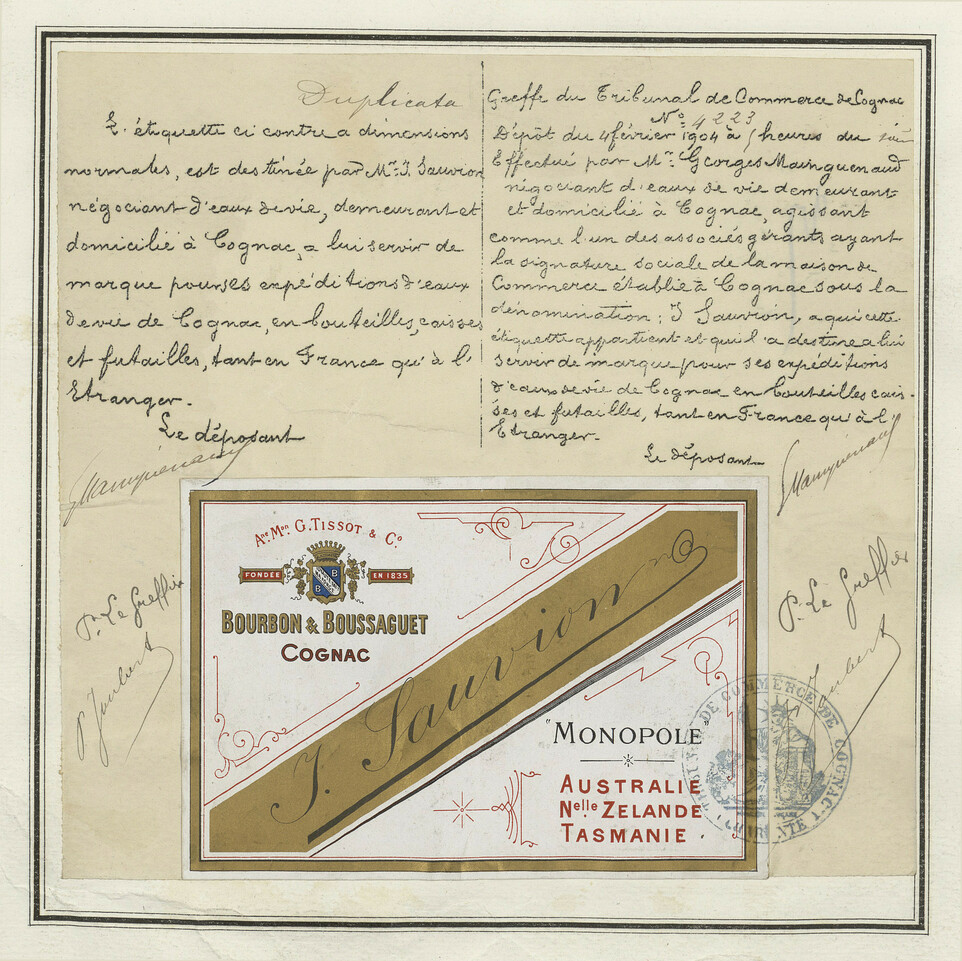 Duplicata
L'étiquette ci contre a dimensions
normales, est destinée par Mr. J. Sauvion
négociant d'eaux de vie, demeurant et
domicilié à Cognac, a lui servir de
marque pour ses expéditions d'eaux
de vie de Cognac, en bouteilles, caisses
et futailles, tant en France qu'à l'
Etranger.
Le déposant
GMainguenaud
Pr. Le Greffier
P. Joubert
Greffe du Tribunal de Commerce de Cognac
No. 4223
Dépôt du 4 février 1904 à heures du
Effectué par Mr. Georges Mainguenaud
négociant d'eaux de vie demeurant
et domicilié à Cognac, agissant
comme l'un des associés gérants ayant
la signature sociale de la maison de
Commerce établie à Cognac sous la
dénomination : J Sauvion, a qui cette
étiquette appartient et qu'il a destine a lui
servir de marque pour ses expéditions
d'eaux de vie de Cognac en bouteilles cais-
ses et futailles, tant en France qu'à l'
Etranger.
Le déposant
GMainguenaud
P. Le Greffier
Joubert
Ane. Mon G. TISSOT & Co.
FONDÉE EN 1835
B B
BOURBON & BOUSSAGUET
COGNAC
J. Sauvion
"MONOPOLE"
AUSTRALIE
Nelle ZELANDE
TASMANIE.
TRIBUNAL DE COMMERCE DE COGNAC